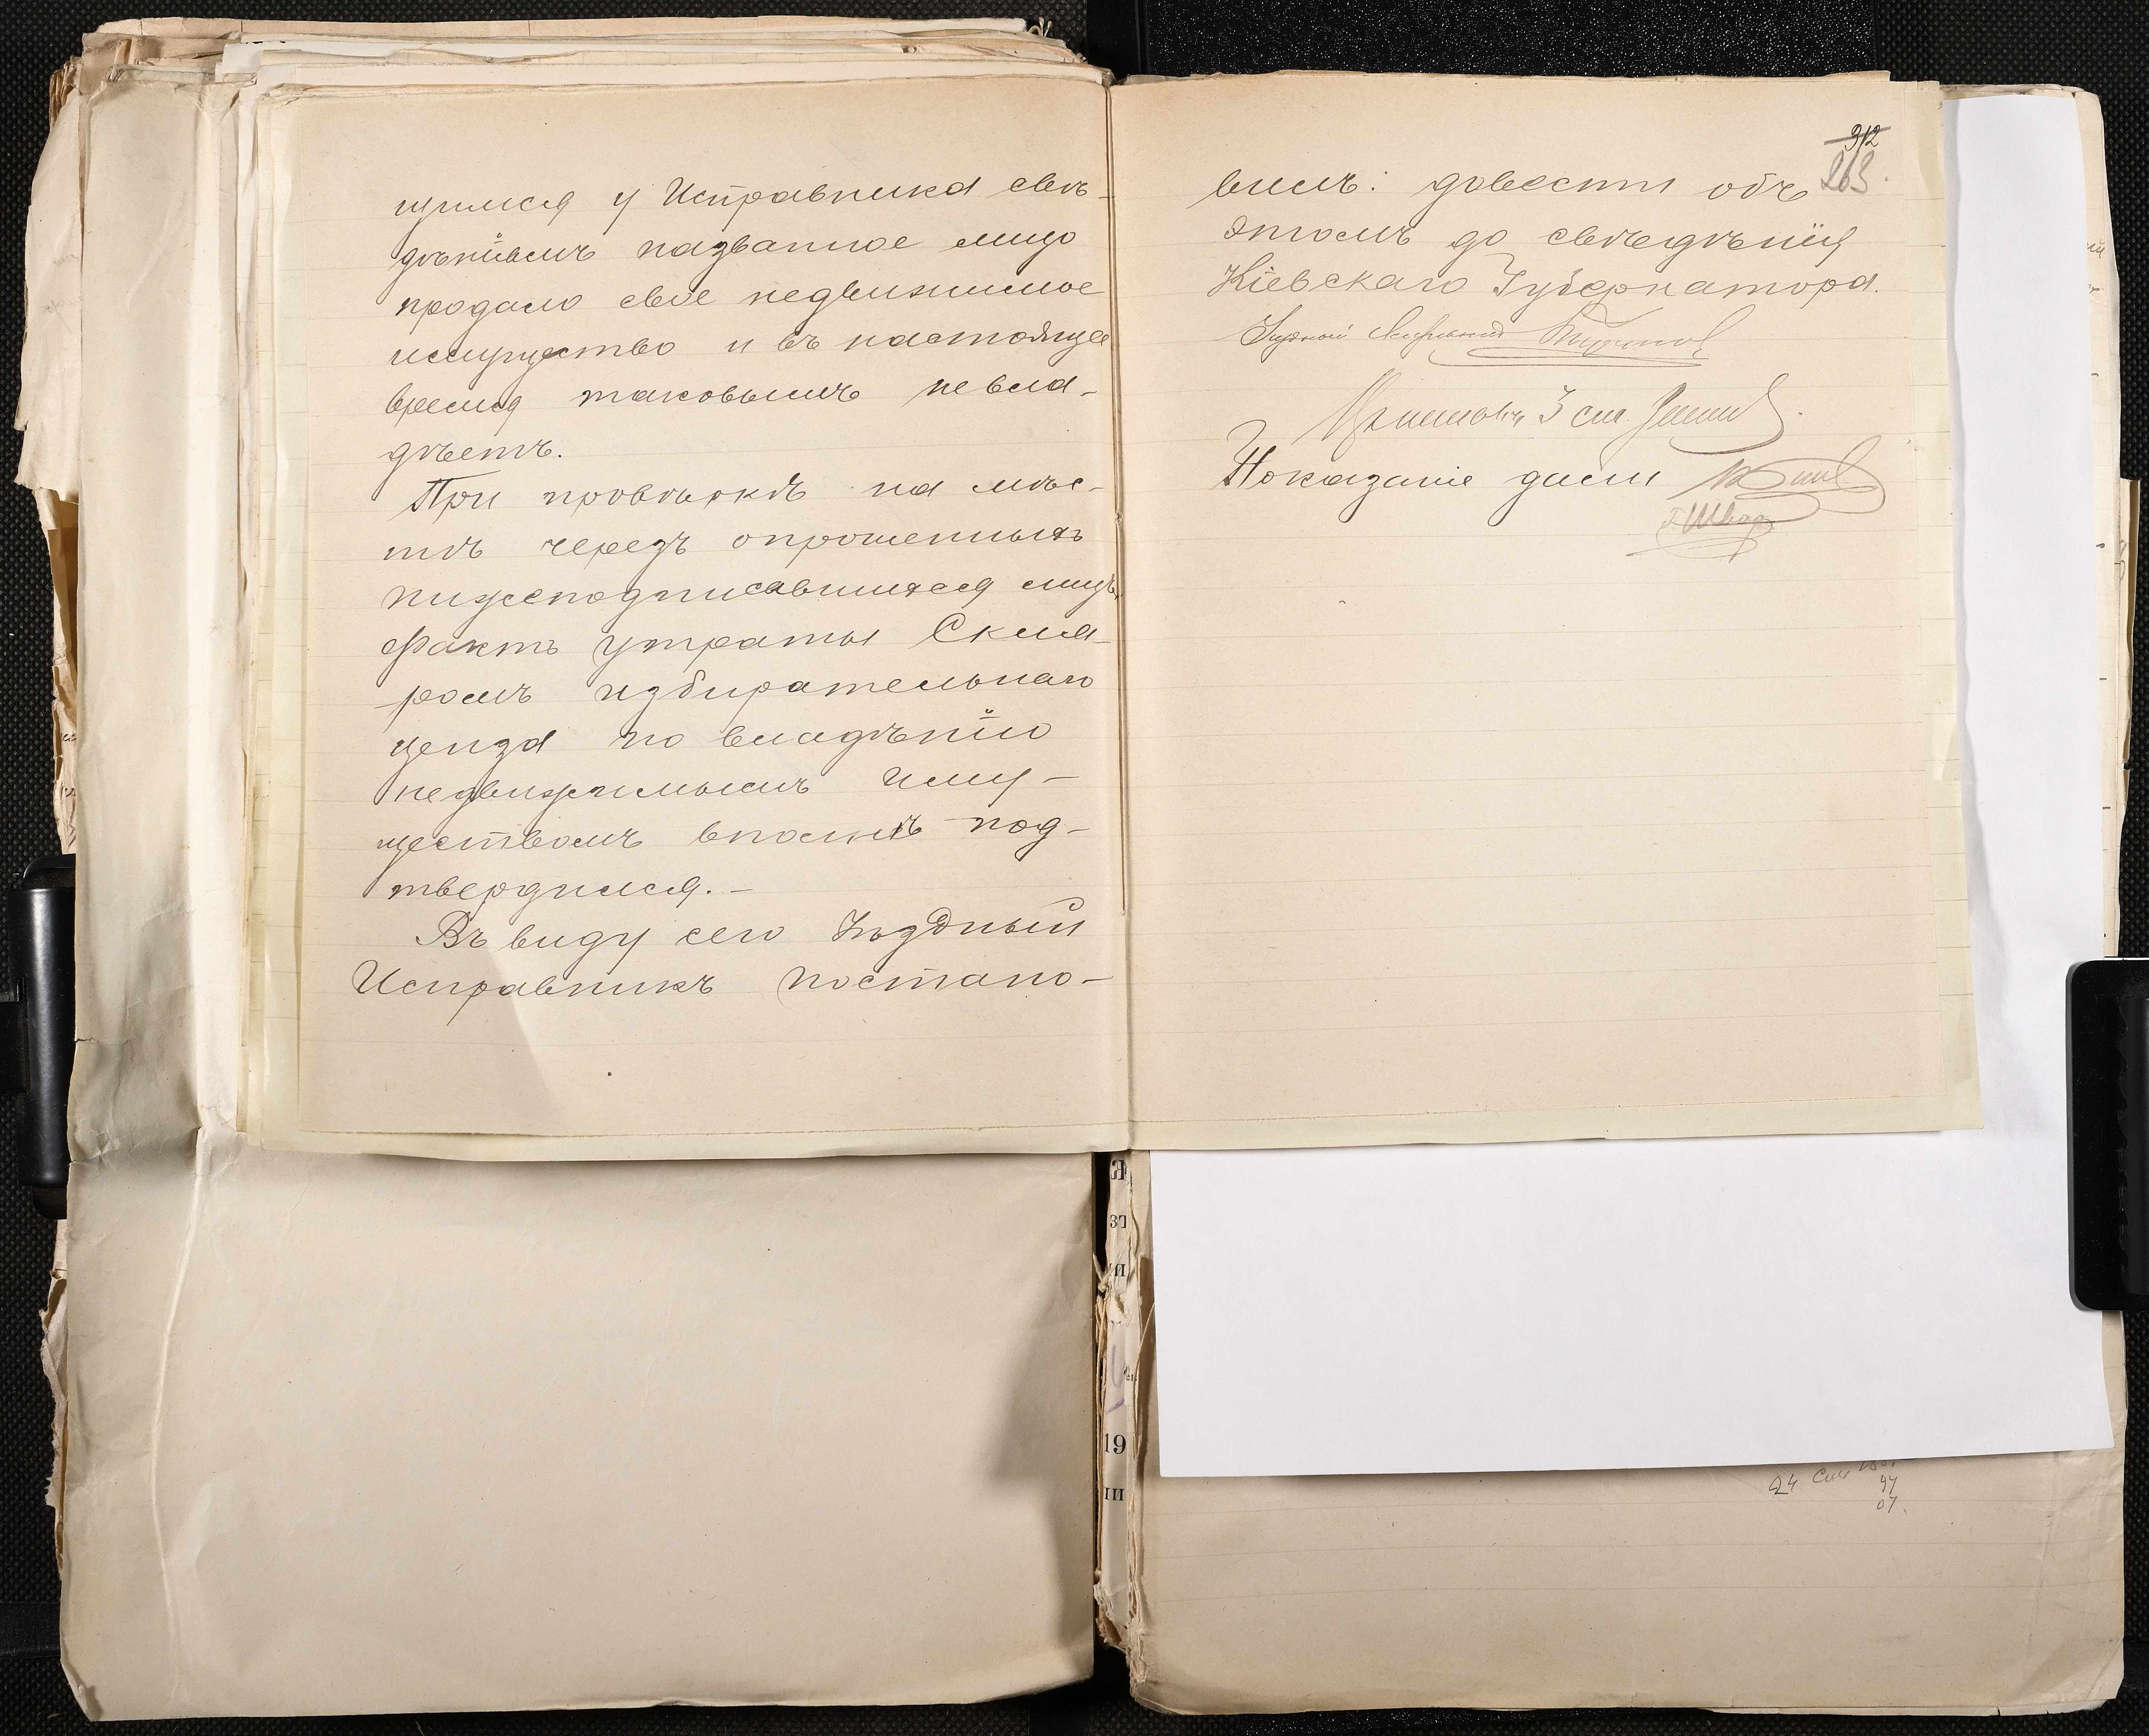 щимся у Исправника свѣ-
дѣніемъ названное лицо
продало свое недвижимое
имущество и въ настоящее
время таковымъ невла-
дѣетъ.
При провѣркѣ на мѣс-
тѣ черезъ опрошенныхъ
нижеподписавшихся лицъ,
фактъ утраты Скля-
ромъ избирательнаго
ценза по владѣнію
недвижимымъ иму-
ществомъ вполнѣ под-
твердился.-
Въ виду сего Уѣздный
Исправникъ постано-
312
263.
вилъ: довести объ
этомъ до свѣдѣнія
Кіевскаго Губернатора.
Уѣздный Исправникъ
Показаніе дали
Швор
19
24
94
07.